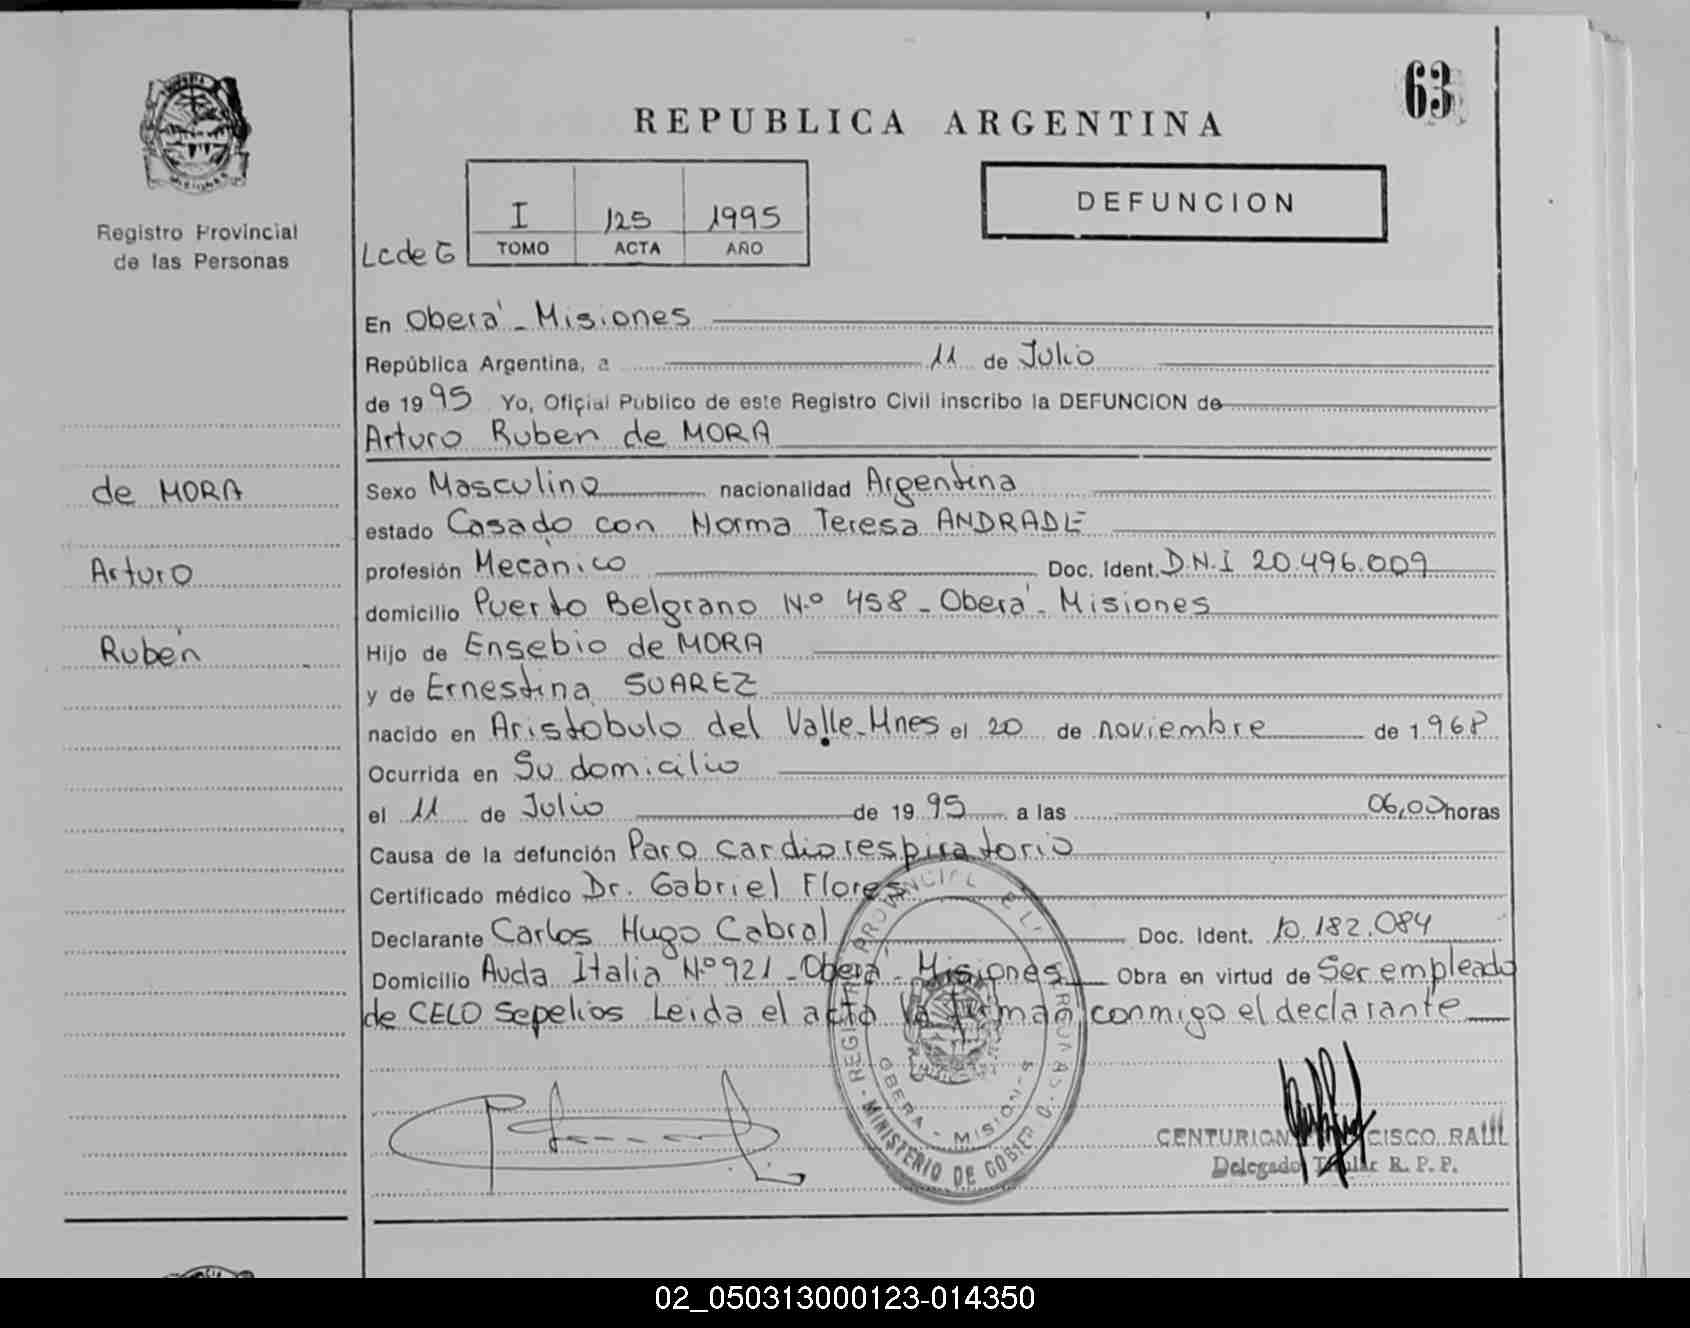 63
REPUBLICA ARGENTINA
DEFUNCION
MISIONES
Registro Provincial
de las Personas
I 125 1995
Lc de G TOMO ACTA AÑO
En Oberá - Misiones
República Argentina, a 11 de Julio
de 1995 Yo, Oficial Publico de este Registro Civil inscribo la DEFUNCION de
Arturo Ruben de MORA
de MORA
Arturo
Rubén
Sexo Masculino nacionalidad Argentina
estado Casado con Norma Teresa ANDRADE
profesión Mecánico Doc. Ident. D.N.I 20.496.009
domicilio Puerto Belgrano N.º 458 - Oberá - Misiones
Hijo de Ensebio de MORA
y de Ernestina SUAREZ
nacido en Aristóbulo del Valle - Mnes el 20 de noviembre de 1.968
Ocurrida en Su domicilio
el 11 de Julio de 1995 a las 06,00 horas
Causa de la defunción Paro cardiorespiratorio
Certificado médico Dr. Gabriel Flores
Declarante Carlos Hugo Cabral Doc. Ident. 10.182.084
Domicilio Avda Italia Nº 921 - Oberá - Misiones Obra en virtud de Ser empleado
de CELO Sepelios Leida el acta la firman conmigo el declarante
REGISTRO PROVINCIAL DE LAS PERSONAS - MINISTERIO DE GOBIERNO
OBERA - MISIONES
CENTURION CISCO RAUL
Delegado Titular R. P. P.
02_050313000123-014350